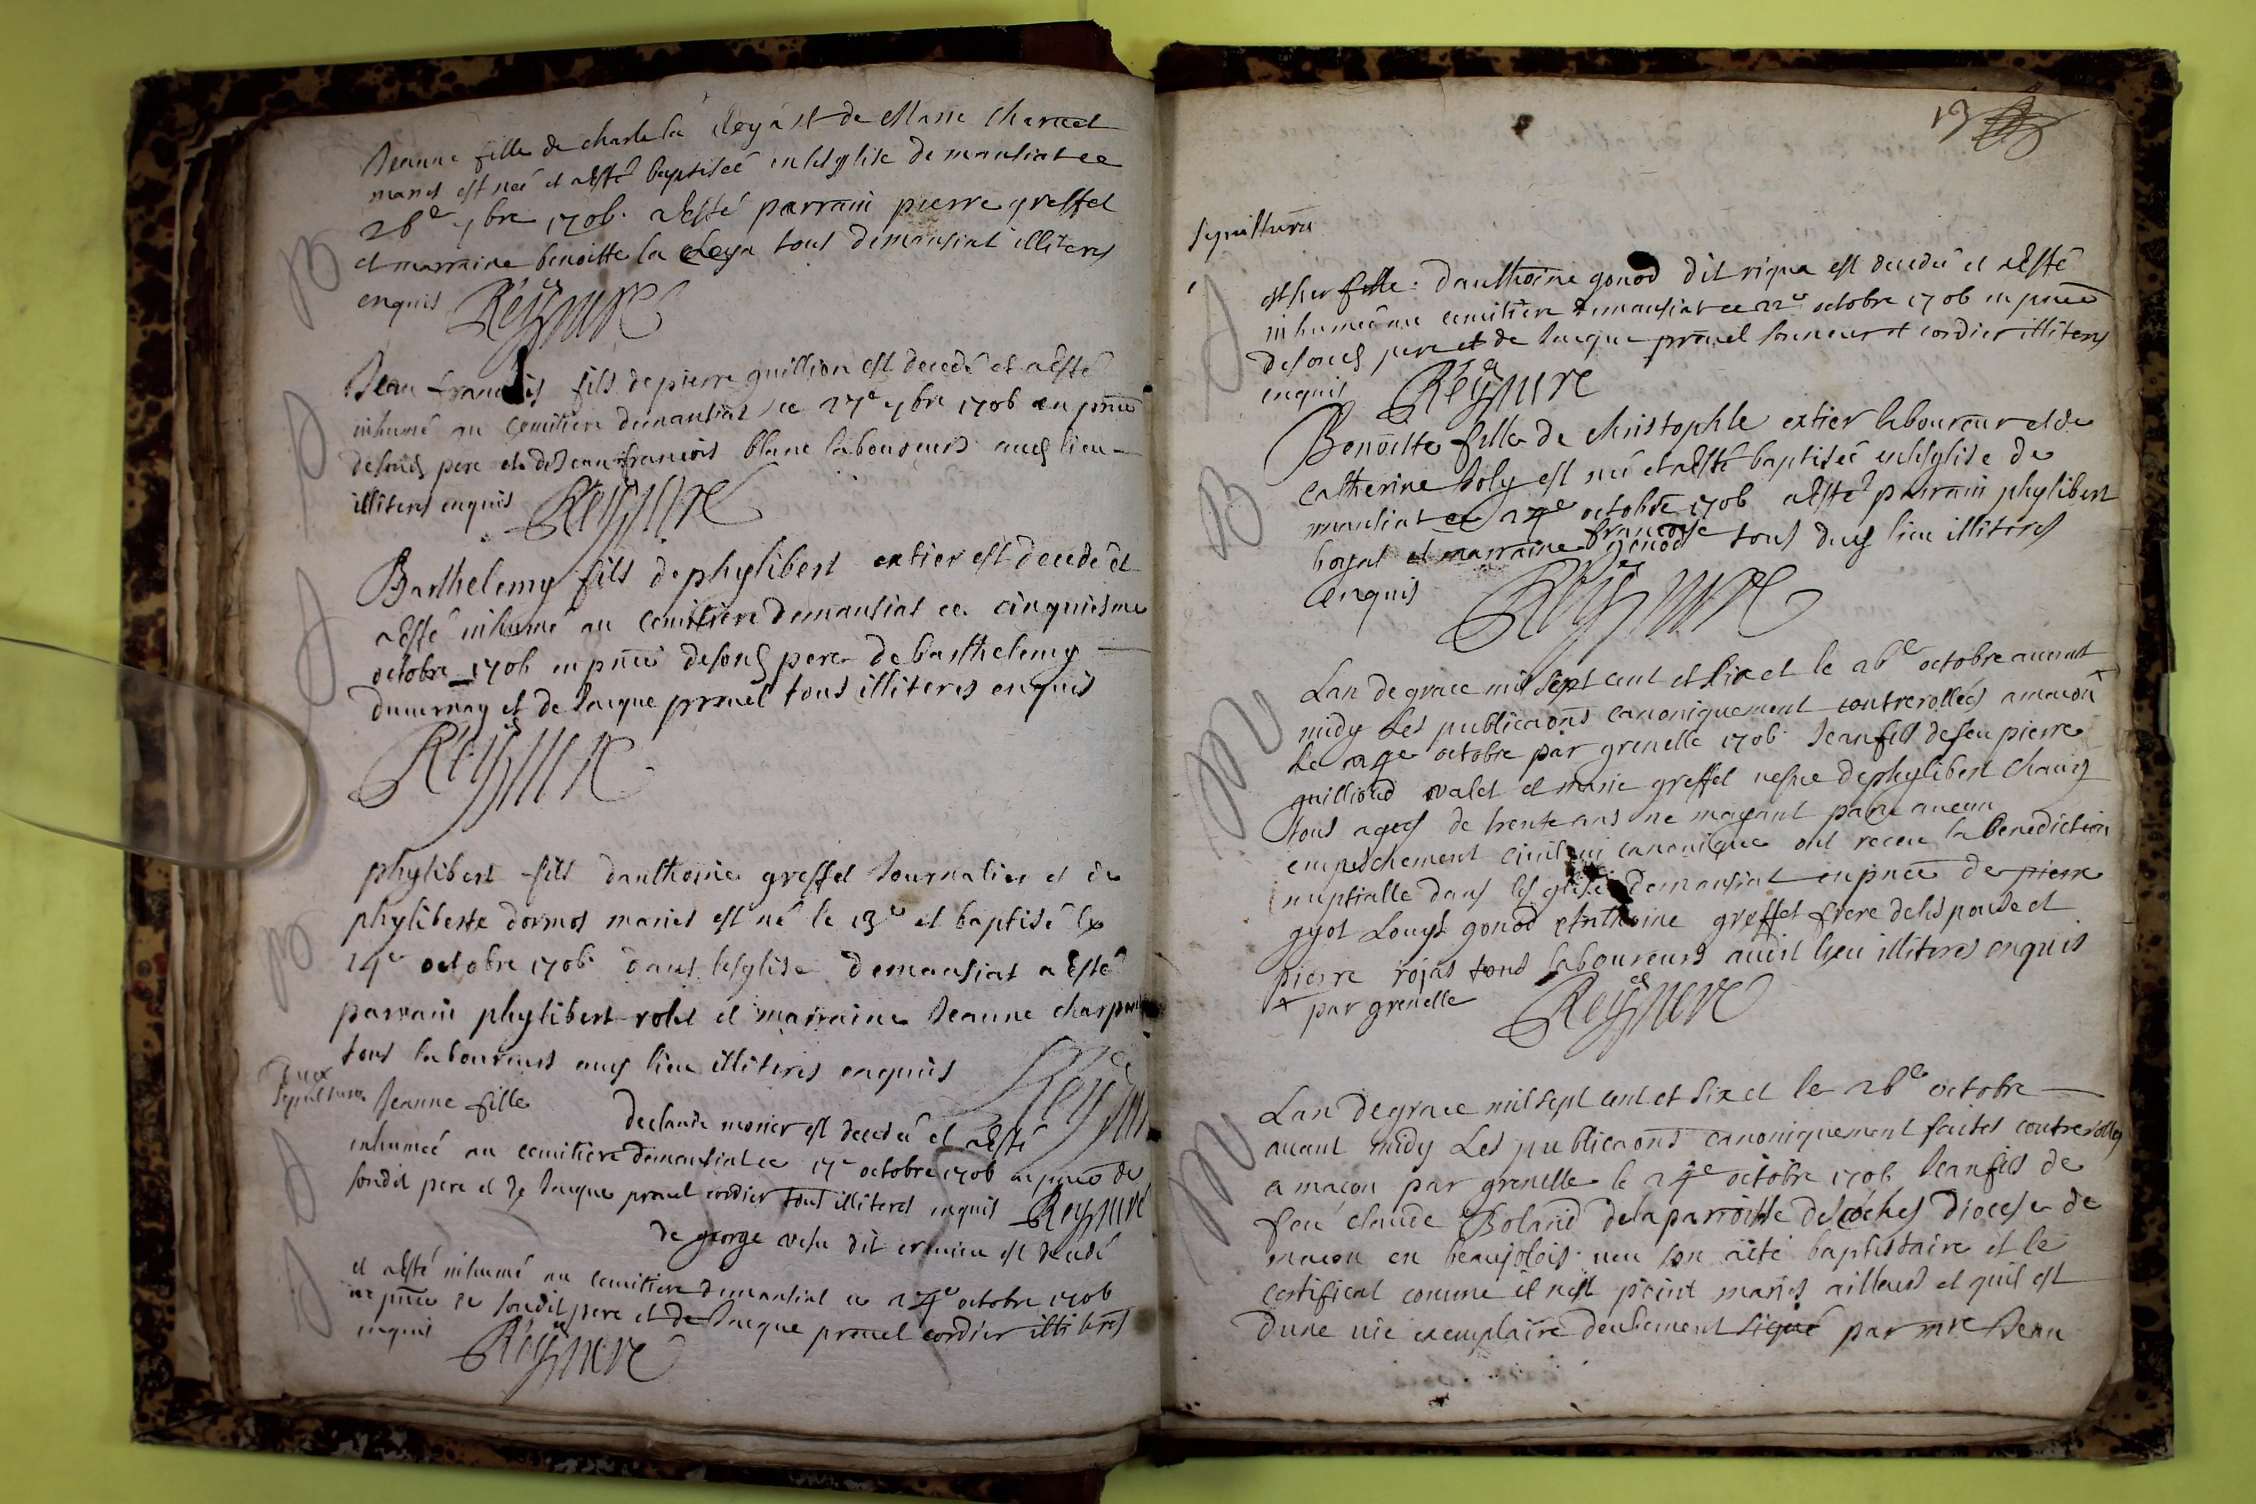 B
Jeanne fille de charle la cleya et de Marie Charvet
maries est neé et aesté baptiseé en lesglise de mansiat ce
26e 7bre 1706. aesté parrain pierre greffet
et marraine benoitte la cleya tous de mansiat illiteres
enquis Reyssiere
S
Jean francois fils de pierre guillion est decedé et aesté
inhumé au cemitiere de mansiat ce 27e 7bre 1706 en pnce
desond pere et de Jean francois blanc laboureurs aud lieu
illiteres enquis Reyssiere
S
Barthelemy fils de phylibert extier est decedé et
aesté inhumé au cemitiere de mansiat ce cinquiesme
octobre 1706 en pnce desond pere de barthelemy
duvernay et de Jacque prevel tous illiteres enquis
Reyssiere
B
phylibert fils danthoine greffet Journalier et de
phyliberte dormos maries est né le 13e et baptisé le
14e octobre 1706 dans lesglise de mansiat aesté
parrain phylibert rolet et marraine Jeanne
tous laboureurs aud lieu illiteres enquis
deux
sepultures
S
Jeanne fille de claude monier est decedeé et aesté
inhumeé au cemitiere de mansiat ce 17e octobre 1706 en pnce de
sondit pere et de Jacque prevel cordier tous illiteres enquis Reyssiere
S
de george vesu dit est decedé
et aesté inhumé au cemitiere de mansiat ce 24e octobre 1706
en pnce de sondit pere et de Jacque prevel cordier illiteres
enquis Reyssiere
13
sepultures
S
esther fille danthoine gonod dit riqua est decedeé et aesté
inhumeé au cemitiere de mansiat ce 22e octobre 1706 en pnce
desond pere et de Jacque prevel sonneur et cordier illiteres
enquis Reyssiere
B
Benoitte fille de christophle extier laboureur et de
Catherine Joly est neé et aesté baptiseé en lesglise de
mansiat ce 24e octobre 1706 aesté parrain phylibert
boyat et marraine francoise gonod tous dud lieu illiteres
enquis Reyssiere
M
Lan de grace mil sept cent et six et le 26e octobre avant
midy Les publicaons canoniquement controrolleés a macon +
le 24e octobre par grenelle 1706 Jean fils de feu pierre
guilliond valet et marie greffet vefve de phylibert chavy
tous ageés de trente ans ne mayant paru aucun
empeschement civil ni canonique ont receu la benediction
nuptialle dans lesglise de mansiat en pnce de pierre
gyot Louys gonod et Anthoine greffet frere delespouse et
pierre rojas tous laboureurs audit lieu illiteres enquis
+ par grenelle Reyssiere
M
Lan de grace mil sept cent et six et le 26e octobre
avant midy Les publicaons canoniquement faites controrolleés
a macon par grenelle le 24e octobre 1706 Jean fils de
feu claude Boland de la parroisse de coches diocese de
macon en beaujolois veu son acte baptistaire et le
certificat comme il nest point mariés ailleurs et quil est
dune vie exemplaire deubement signé par mre Jean